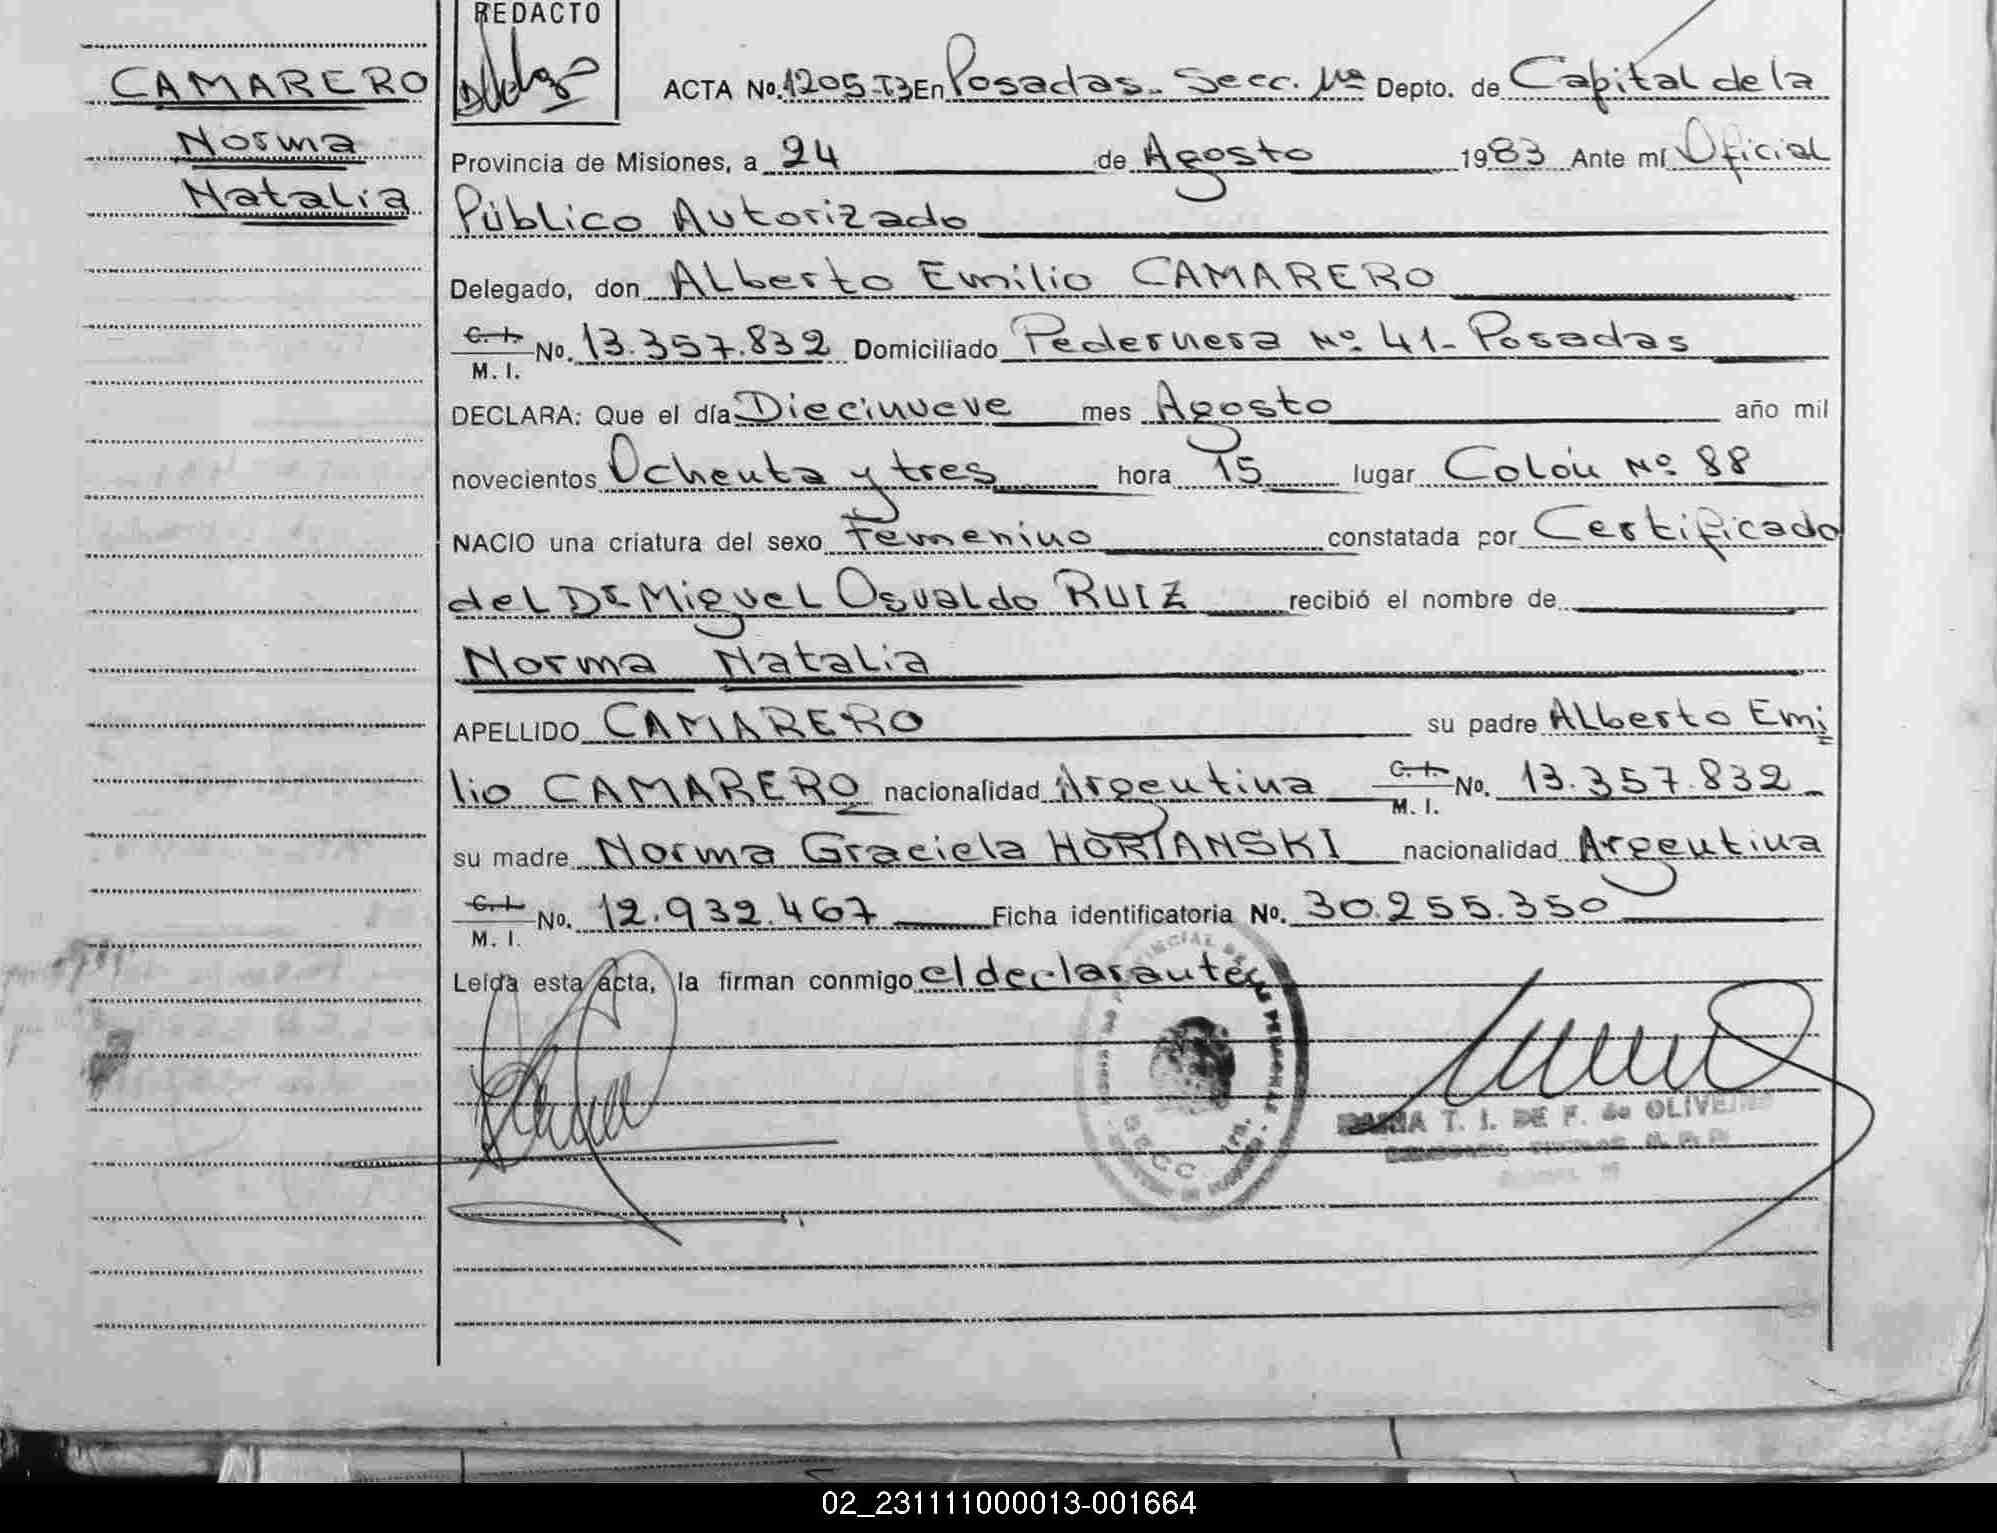 REDACTO
CAMARERO
Norma
Natalia
ACTA No. 1205-T3 En Posadas. Secc. 1ra Depto. de Capital de la
Provincia de Misiones, a 24 de Agosto 1983 Ante mí Oficial
Público Autorizado
Delegado, don ALberto Emilio CAMARERO
C. I. / M. I. No. 13.357.832 Domiciliado Pedernera No. 41- Posadas
DECLARA: Que el día Diecinueve mes Agosto año mil
novecientos Ochenta y tres hora 15 lugar Colón No. 88
NACIO una criatura del sexo Femenino constatada por Certificado
del Dr. Miguel Osvaldo RUIZ recibió el nombre de
Norma Natalia
APELLIDO CAMARERO su padre ALberto Emi
lio CAMARERO nacionalidad Argentina C. I. / M. I. No. 13.357.832
su madre Norma Graciela HORIANSKI nacionalidad Argentina
C. I. / M. I. No. 12.932.467 Ficha identificatoria No. 30.255.350
Leída esta acta, la firman conmigo el declarante
SECC. 1ra.
T. I. DE F. de OLIVEIRA
02_231111000013-001664